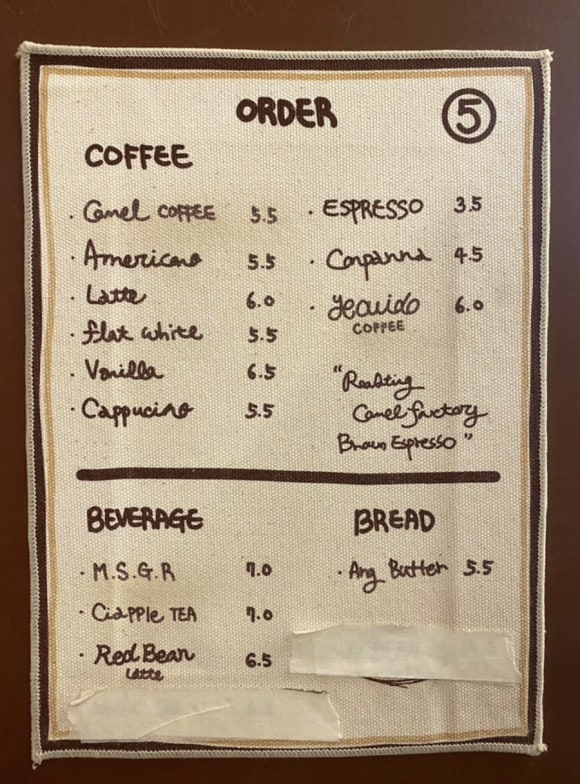 ORDER
⑤
COFFEE
· Camel COFFEE 5.5
· Americano 5.5
· Latte 6.0
· flat white 5.5
· Vanilla 6.5
· Cappucino 5.5
· ESPRESSO 3.5
· Conpanna 4.5
· 6.0
COFFEE
"Roasting
Camel factory
Brown Espresso"
BEVERAGE
· M.S.G.R 7.0
· Ciapple TEA 7.0
· Red Bean 6.5
Latte
BREAD
· Ang Butter 5.5